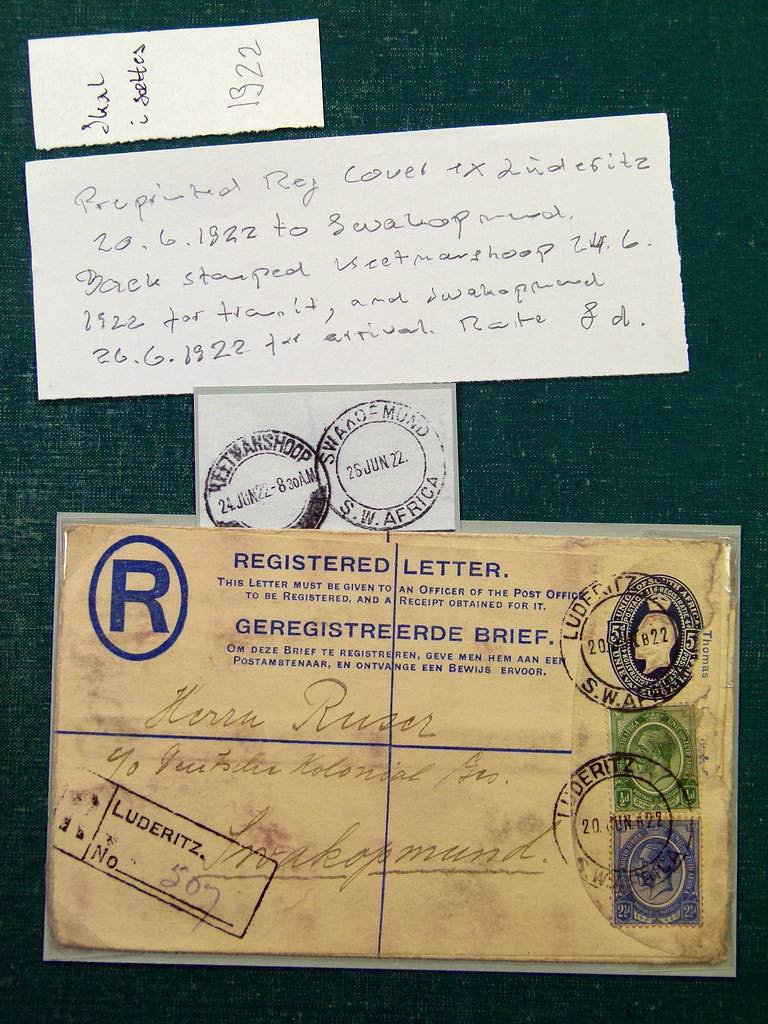 Skal
i sættes
1922
Preprinted Reg Cover ex Lüderitz
20.6.1922 to Swakopmund.
Back stamped Keetmanshoop 24.6.
1922 for transit, and Swakopmund
26.6.1922 for arrival. Rate 8 d.
KEETMANSHOOP
24 JUN 22-8 30 AM
SWAKOPMUND
26 JUN 22.
S.W. AFRICA
R
REGISTERED LETTER.
THIS LETTER MUST BE GIVEN TO AN OFFICER OF THE POST OFFICE
TO BE REGISTERED, AND A RECEIPT OBTAINED FOR IT.
GEREGISTREERDE BRIEF.
OM DEZE BRIEF TE REGISTREREN, GEVE MEN HEM AAN EEN
POSTAMBTENAAR, EN ONTVANGE EEN BEWIJS ERVOOR.
LUDERITZ
20 JUN B22
S.W. AFRICA
UNION OF SOUTH AFRICA
5
5
Thomas
Herrn Ruser
c/o Deutsche Kolonial Ges.
Swakopmund.
R
LUDERITZ.
No
507
LUDERITZ
20. JUN. B22
S.W. AFRICA
½d
½d
2½d
2½d